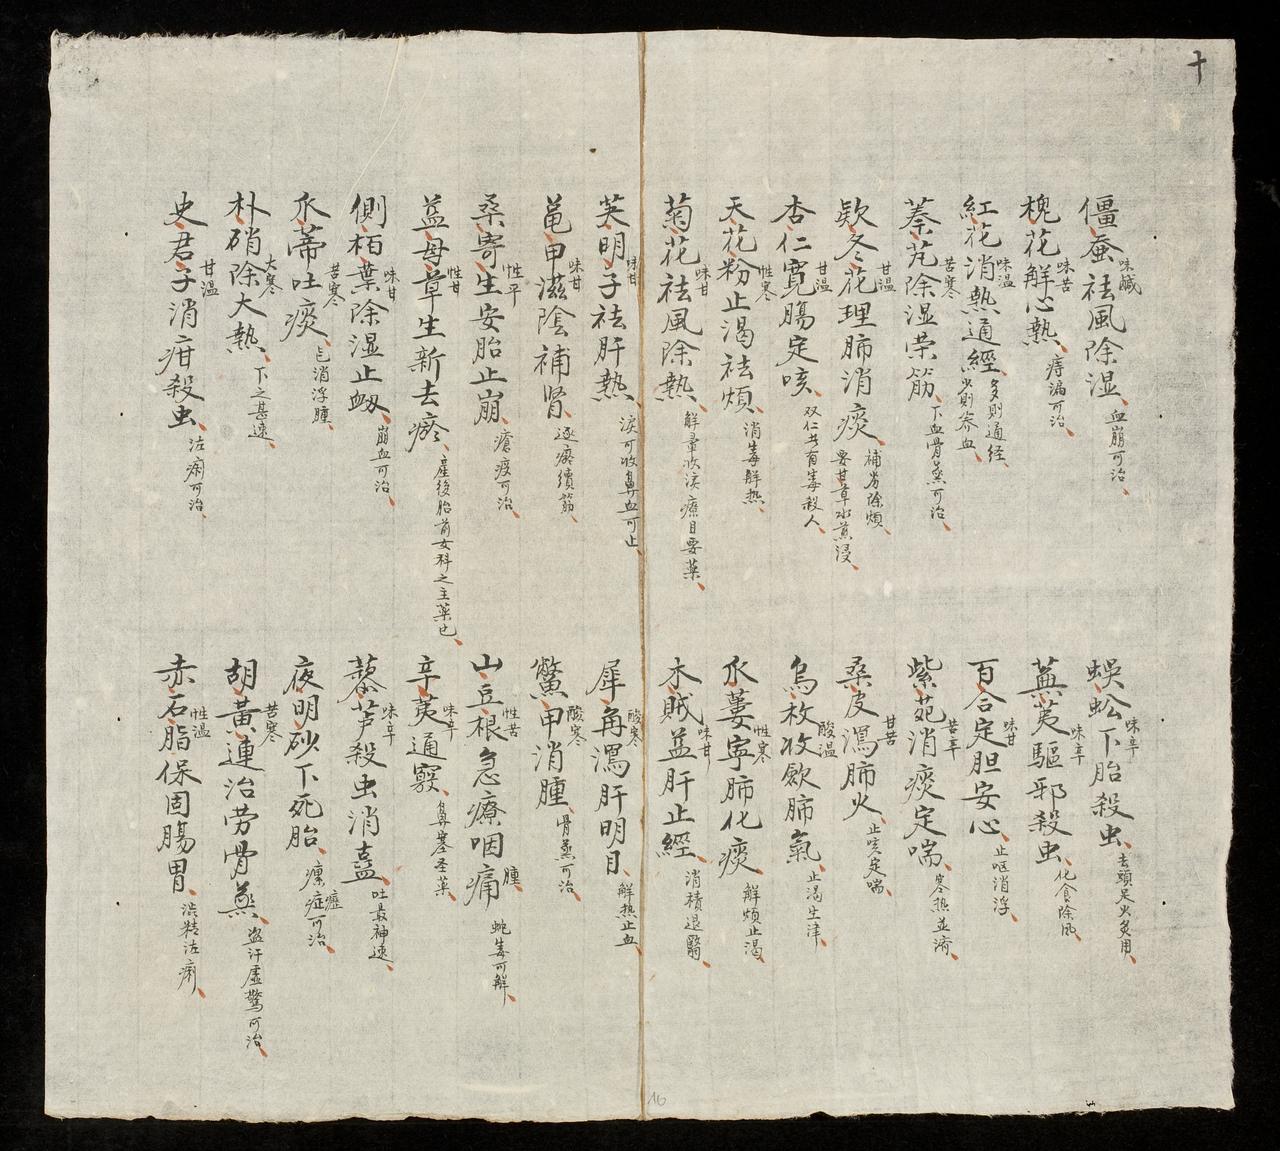 十
僵蚕味鹹祛風除湿血崩可治
槐花味苦解心熱痔漏可治
紅花味温消熱通經多則通经少則养血
蓁艽苦寒除湿荣筋下血骨蒸可治
欵冬花甘温理肺消痰補劳除煩要甘草水煎浸
杏仁甘温寛腸定咳双仁者有毒殺人
天花粉性寒止渴祛煩消毒解热
菊花味甘祛風除熱解暈收淚療目要薬
蜈蚣味辛下胎殺虫去頭足火炙用
蕪荑味辛驅邪殺虫化食除風
百合味甘定胆安心止呕消浮
紫菀苦辛消痰定喘寒热並済
桑皮甘苦瀉肺火止咳定喘
烏枚酸温收歛肺氣止渴生津
瓜蔞性寒寧肺化痰解煩止渴
木賊味甘益肝止經消積退翳
芺明子味甘祛肝熱淚可收鼻血可止
黾甲味甘滋陰補肾逐瘀續筋
桑寄生性平安胎止崩瘡疫可治
益母草性甘生新去瘀産後胎前女科之主薬也
側栢葉味甘除湿止衂崩血可治
瓜蒂苦寒吐痰已消浮腫
朴硝大寒除大熱下之甚速
史君子甘温消疳殺虫泣痢可治
犀角酸寒瀉肝明目解热止血
鱉甲酸寒消腫骨蒸可治
山豆根性苦急療咽腫痛蛇毒可解
辛荑味辛通竅鼻塞圣薬
藜芦味辛殺虫消蠱吐最神速
夜明砂下死胎瘰癧症可治
胡黃連苦寒治劳骨蒸盗汗虛驚可治
赤石脂性温保固腸胃澁精泣痢
16